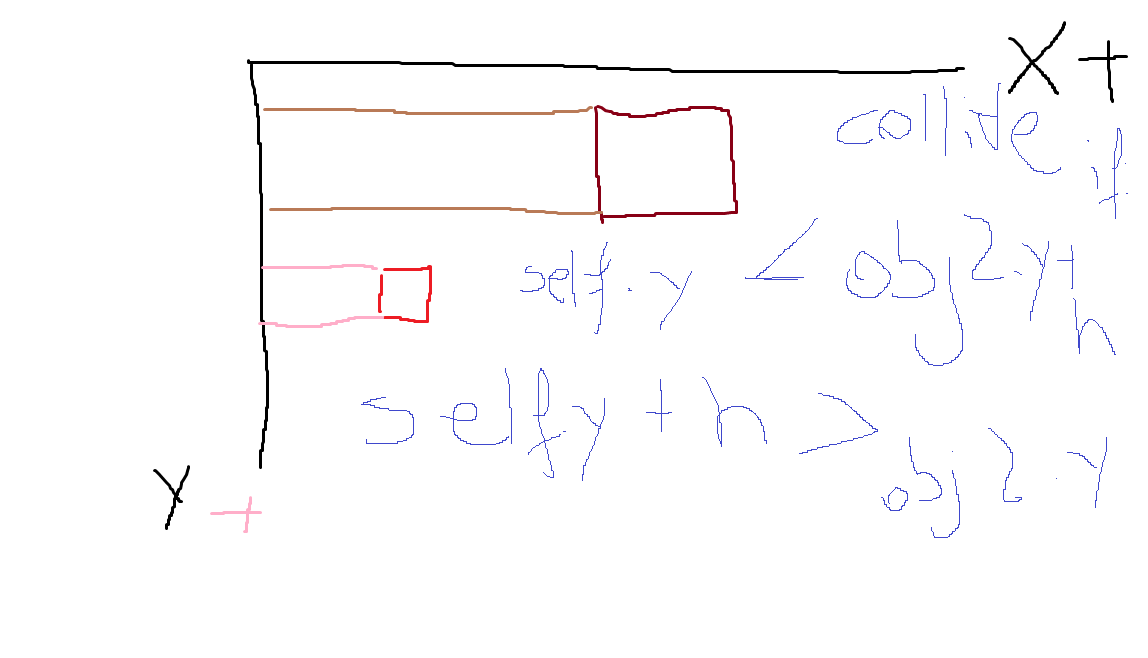 X +
collide if
self.y <= obj2.y+h
self.y + h > obj2.y
Y +